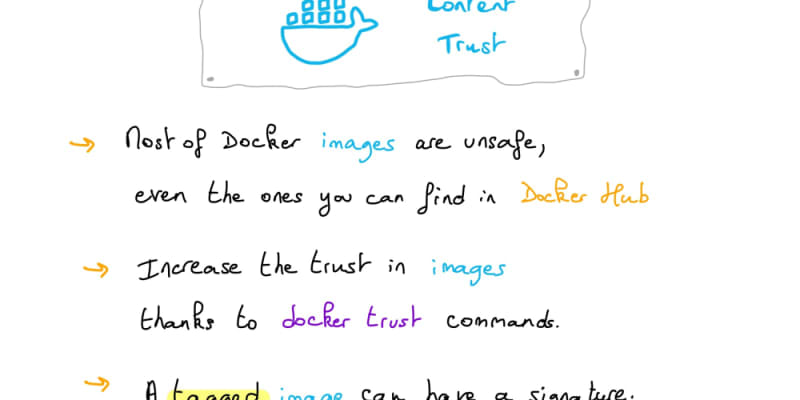 Content
Trust
→ Most of Docker images are unsafe,
even the ones you can find in Docker Hub
→ Increase the trust in images
thanks to docker trust commands.
→ A tagged image can have a signature.